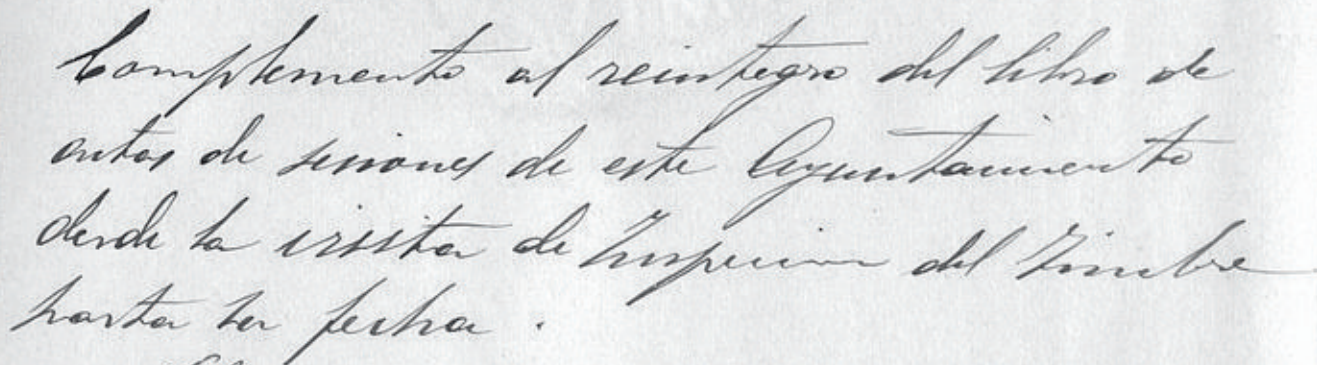 Complemento al reintegro del libro de
actas de sesiones de este Ayuntamiento
desde la visita de Inspección del Timbre
hasta la fecha.